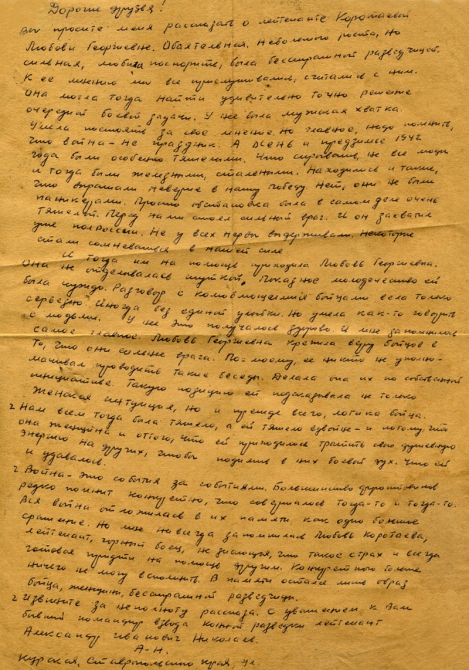 Дорогие друзья!
Вы просите меня рассказать о лейтенанте Коротаевой
Любови Георгиевне. Обаятельная, невысокого роста, но
сильная, любила поспорить, была бесстрашной разведчицей.
К ее мнению мы все прислушивались, считались с ним.
Она могла тогда найти удивительно точно решение
очередной боевой задачи. У нее была мужская хватка.
Умела постоять за свое мнение. Но главное, надо помнить,
что война - не праздник. А осень и предзимье 1942
года были особенно тяжелыми. Что скрывать, не все люди
и тогда были железными, стальными. Находились и такие,
что выражали неверие в нашу победу. Нет, они не были
паникерами. Просто обстановка была в самом деле очень
тяжелой. Перед нами стоял сильный враг. И он захватил
уже полроссии. Не у всех нервы выдерживали. Некоторые
стали сомневаться в нашей силе.
И тогда им на помощь приходила Любовь Георгиевна.
Она не отделывалась шуткой. Показное молодечество ей
было чуждо. Разговор с колеблющимися бойцами вела только
серьезно. Иногда без единой улыбки. Но умела как-то говорить
с людьми. У нее это получалось здорово. И мне запомнилось
самое главное. Любовь Георгиевна крепила веру бойцов в
то, что они сильнее врага. По-моему, ее никто не уполно-
мачивал проводить такие беседы. Делала она их по собственной
инициативе. Такую позицию ей подсказывала не только
женская интуиция, но и прежде всего, логика бойца.
Нам всем тогда было тяжело, а ей тяжело вдвойне - и потому, что
она женщина и оттого, что ей приходилось тратить свою душевную
энергию на других, чтобы поднять в них боевой дух. Что ей
и удавалось.
Война - это события за событиями. Большинство фронтовиков
редко помнит конкретно, что совершалось тогда-то и тогда-то.
Вся война отложилась в их памяти, как одно большое
сражение. Но мне навсегда запомнилась Любовь Коротаева,
лейтенант, горный боец, не знающая, что такое страх и всегда
готовая придти на помощь другим. Конкретного больше
ничего не могу вспомнить. В памяти остался лишь образ
бойца, женщины, бесстрашной разведчицы.
Извините за неполноту рассказа. С уважением к Вам
бывший командир взвода конной разведки лейтенант
Александр Иванович Николаев.
А-Н.
Курская, Ставропольского края,